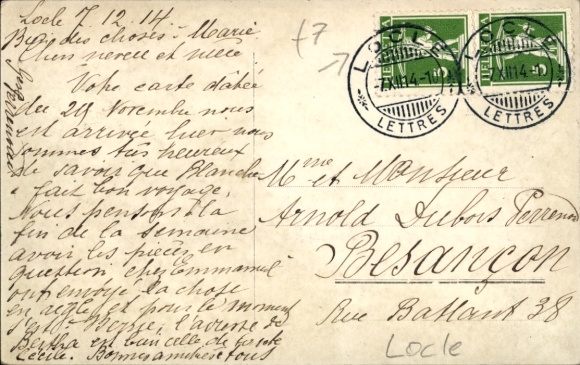 Locle 7.12.14
Bien des choses. Marie
Chers neveu et nièce
Votre carte datée
du 29 Novembre nous
est arrivée hier nous
sommes très heureux
de savoir que Blanche
a fait bon voyage.
Nous pensons la
fin de la semaine
avoir les pièces en
question, chez Emmanuel
ont envoyé la chose
en règle, et pour le moment
l'adresse de
Bertha est bien celle de tante
Cécile. Bonnes amitiés à tous
+7
LOCLE
-7.XII.14.-1
LETTRES
LOCLE
7.XII.14.-1
LETTRES
HELVETIA
5
HELVETIA
5
Mme et Monsieur
Arnold Dubois Perrenod
Besançon
Rue Battant 38
Locle